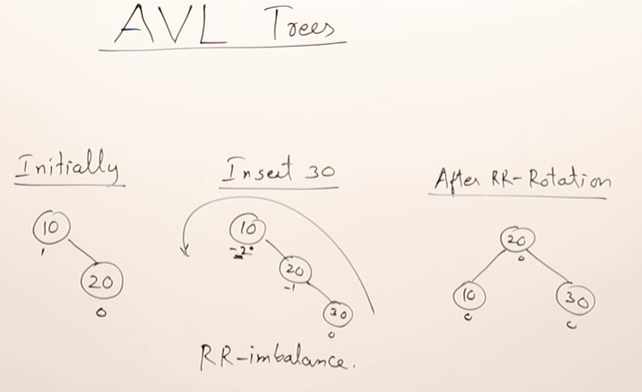 AVL Trees
Initially
10
20
0
Insert 30
10
-2
20
-1
30
0
RR-imbalance.
After RR-Rotation
20
0
10
0
30